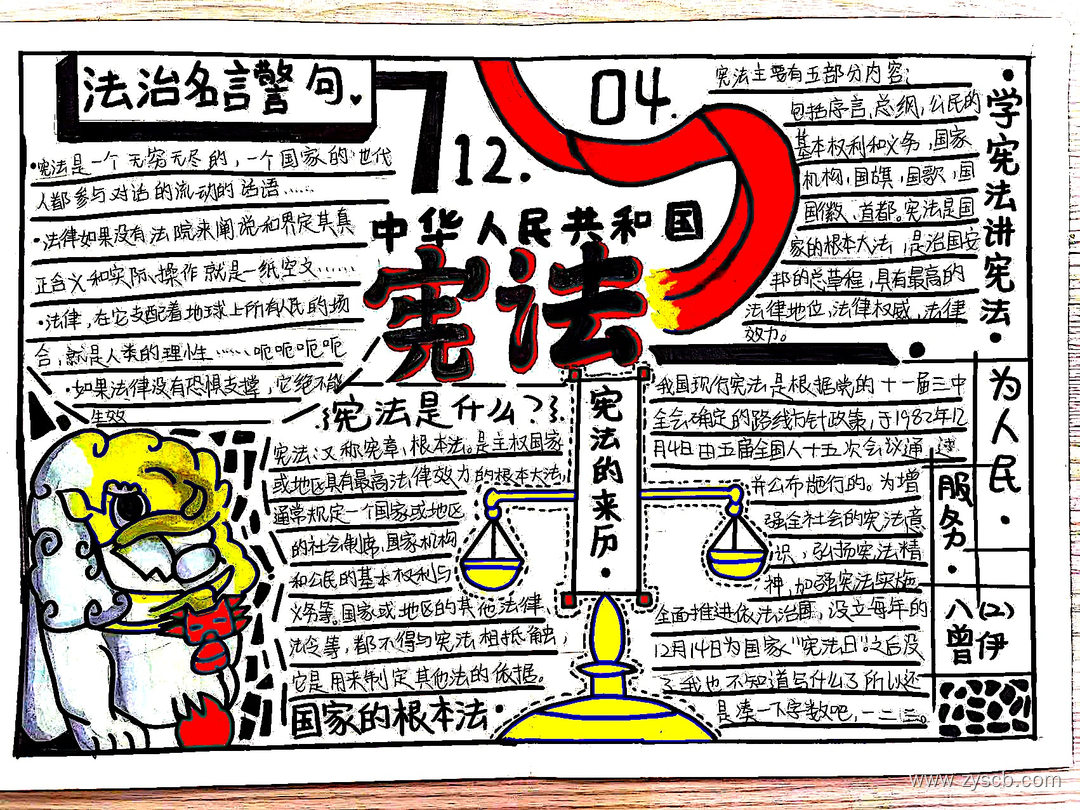 法治名言警句
•宪法是一个无穷无尽的,一个国家的世代
人都参与对话的流动的话语……
•法律如果没有法院来阐说和界定其真
正含义和实际操作就是一纸空文……
•法律,在它支配着地球上所有人民的场
合,就是人类的理性……呃呃呃呃
•如果法律没有恐惧支撑,它绝不能
生效
12.
04.
中华人民共和国
宪法
宪法主要有五部分内容:
包括序言,总纲,公民的
基本权利和义务,国家
机构,国旗,国歌,国
国徽、首都。宪法是国
家的根本大法,是治国安
邦的总章程,具有最高的
法律地位,法律权威,法律
效力。
•学宪法讲宪法•
为人民•
服务•
八(2)
曾伊
宪法是什么?
宪法:又称宪章,根本法。是主权国家
或地区具有最高法律效力的根本大法,
通常规定一个国家或地区
的社会制度,国家机构
和公民的基本权利与
义务等。国家或地区的其他法律、
法令等,都不得与宪法相抵触,
它是用来制定其他法的依据。
国家的根本法•
宪法的来历•
我国现行宪法是根据党的十一届三中
全会确定的路线方针政策,于1982年12
月4日由五届全国人大五次会议通过
并公布施行的。为增
强全社会的宪法意
识,弘扬宪法精
神,加强宪法实施
全面推进依法治国,设立每年的
12月14日为国家"宪法日"之后没
了我也不知道写什么了所以还
是凑一下字数吧,一二三。
www.zyscb.com